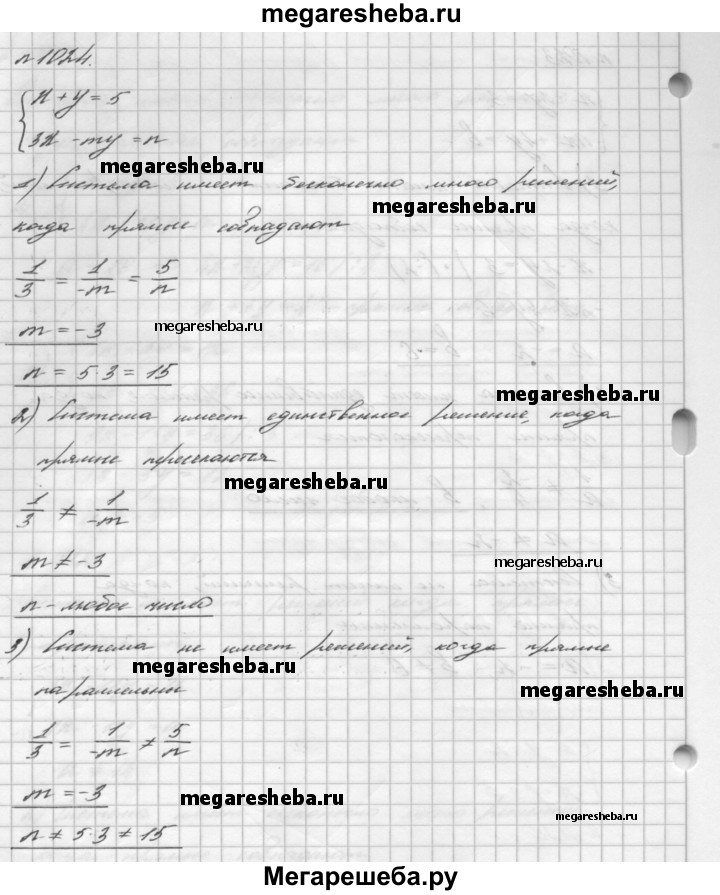 megaresheba.ru
n 1024.
{ x + y = 5
3x - my = n
megaresheba.ru
1) Система имеет бесконечно много решений,
megaresheba.ru
когда прямые совпадают
1/3 = 1/-m = 5/n
m = -3
megaresheba.ru
n = 5·3 = 15
megaresheba.ru
2) Система имеет единственное решение, когда
прямые пересекаются
megaresheba.ru
1/3 ≠ 1/-m
m ≠ -3
megaresheba.ru
n - любое число
3) Система не имеет решений, когда прямые
megaresheba.ru
параллельны
megaresheba.ru
1/3 = 1/-m ≠ 5/n
m = -3
megaresheba.ru
megaresheba.ru
n ≠ 5·3 ≠ 15
Мегарешеба.ру